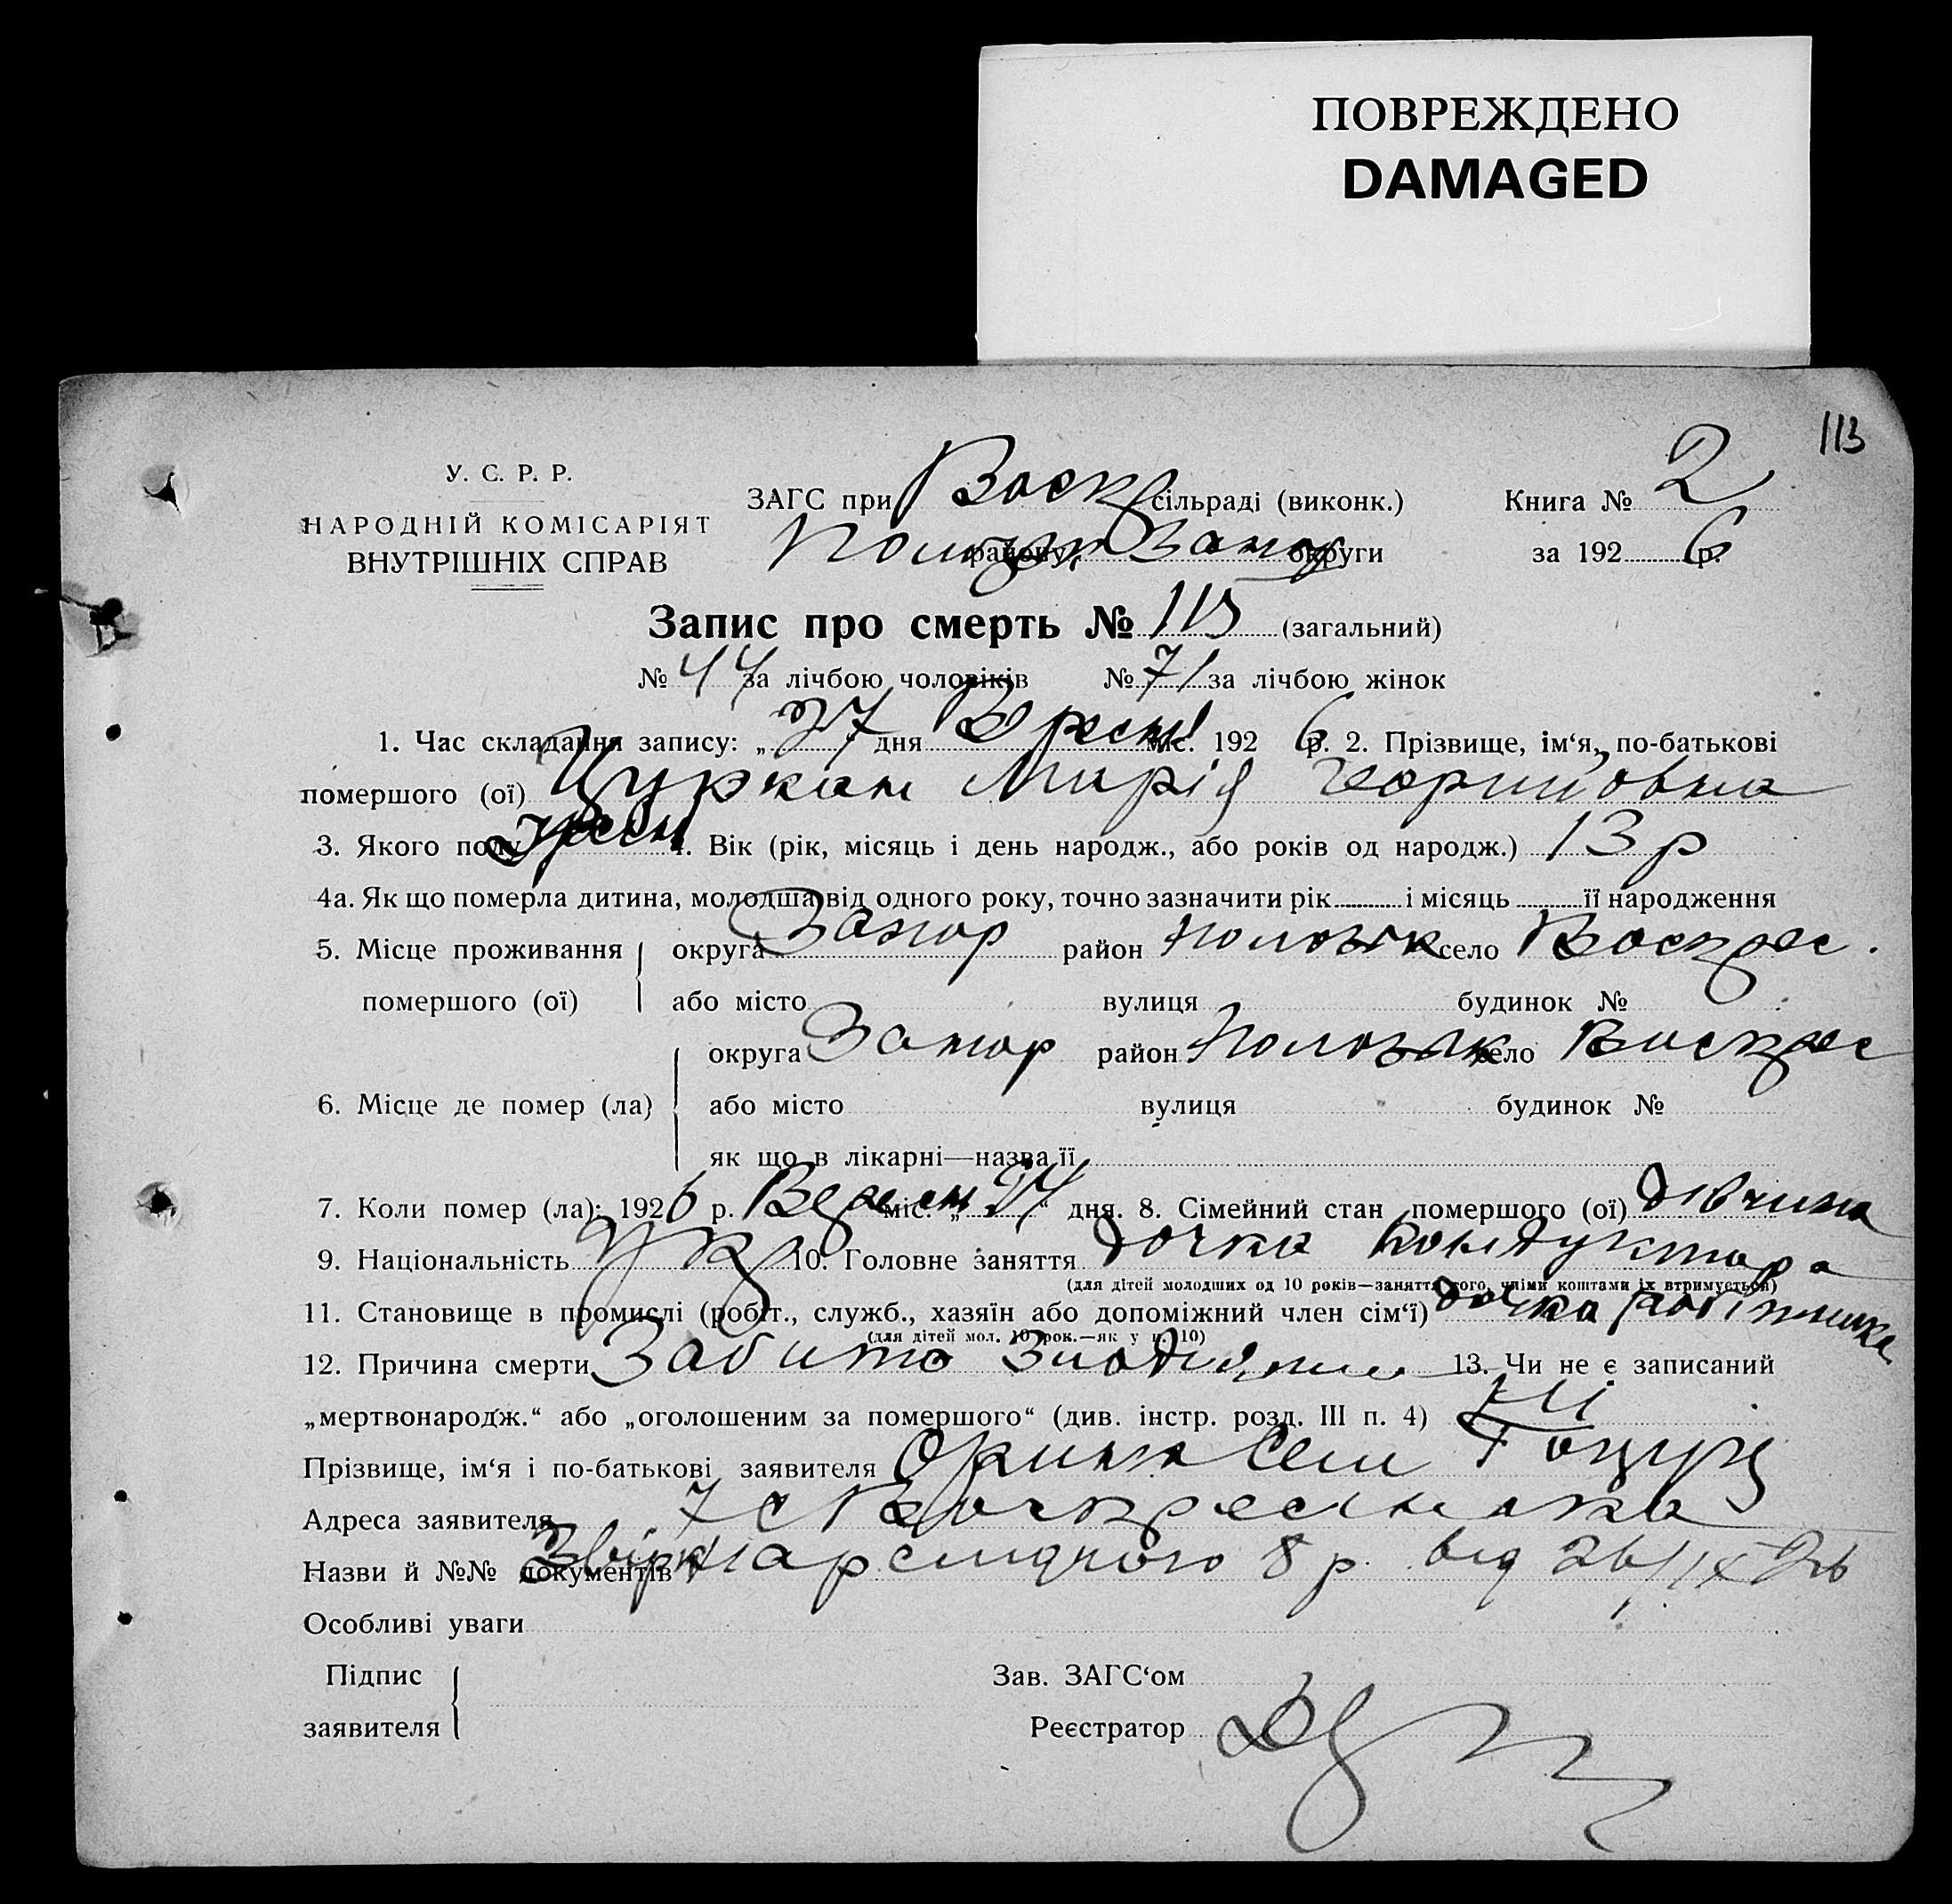 ПОВРЕЖДЕНО
DAMAGED
113
У. С. Р. Р.
НАРОДНІЙ КОМІСАРІЯТ
ВНУТРІШНІХ СПРАВ
ЗАГС при Воскр сільраді (виконк.) Книга № 2
району округи за 192 6 р.
Запис про смерть № 115 (загальний)
№ 44 за лічбою чоловіків № 71 за лічбою жінок
1. Час складання запису: „27" дня Вересн міс. 192 6 р. 2. Прізвище, ім‘я, по-батькові
помершого (ої) Цуркан Марія Георгиіовна
3. Якого полу 4. Вік (рік, місяць і день народж., або років од народж.) 13 р
4а. Як що померла дитина, молодша від одного року, точно зазначити рік і місяць її народження
5. Місце проживання помершого (ої) округа Запор район Пологськ село Воскрес.
або місто вулиця будинок №
6. Місце де помер (ла) округа Запор район Пологськ село Воскрес
або місто вулиця будинок №
як що в лікарні—назва її
7. Коли помер (ла): 1926 р. Вересн міс. „24" дня. 8. Сімейний стан помершого (ої) дівчина
9. Національність Укр 10. Головне заняття дочка кондуктора
(для дітей молодших од 10 років—заняття того, чиїми коштами їх втримується)
11. Становище в промислі (робіт., служб., хазяїн або допоміжний член сім‘ї) дочка робітника
(для дітей мол. 10 рок.—як у п. 10)
12. Причина смерти Забито 13. Чи не є записаний
„мертвонародж.“ або „оголошеним за помершого“ (див. інстр. розд. III п. 4) Ні
Прізвище, ім‘я і по-батькові заявителя Орина Сем
Адреса заявителя с Воскресенка
Назви й №№ документів Нарслидчого 8 р. від 26/IX 26
Особливі уваги
Підпис заявителя
Зав. ЗАГС‘ом
Реєстратор